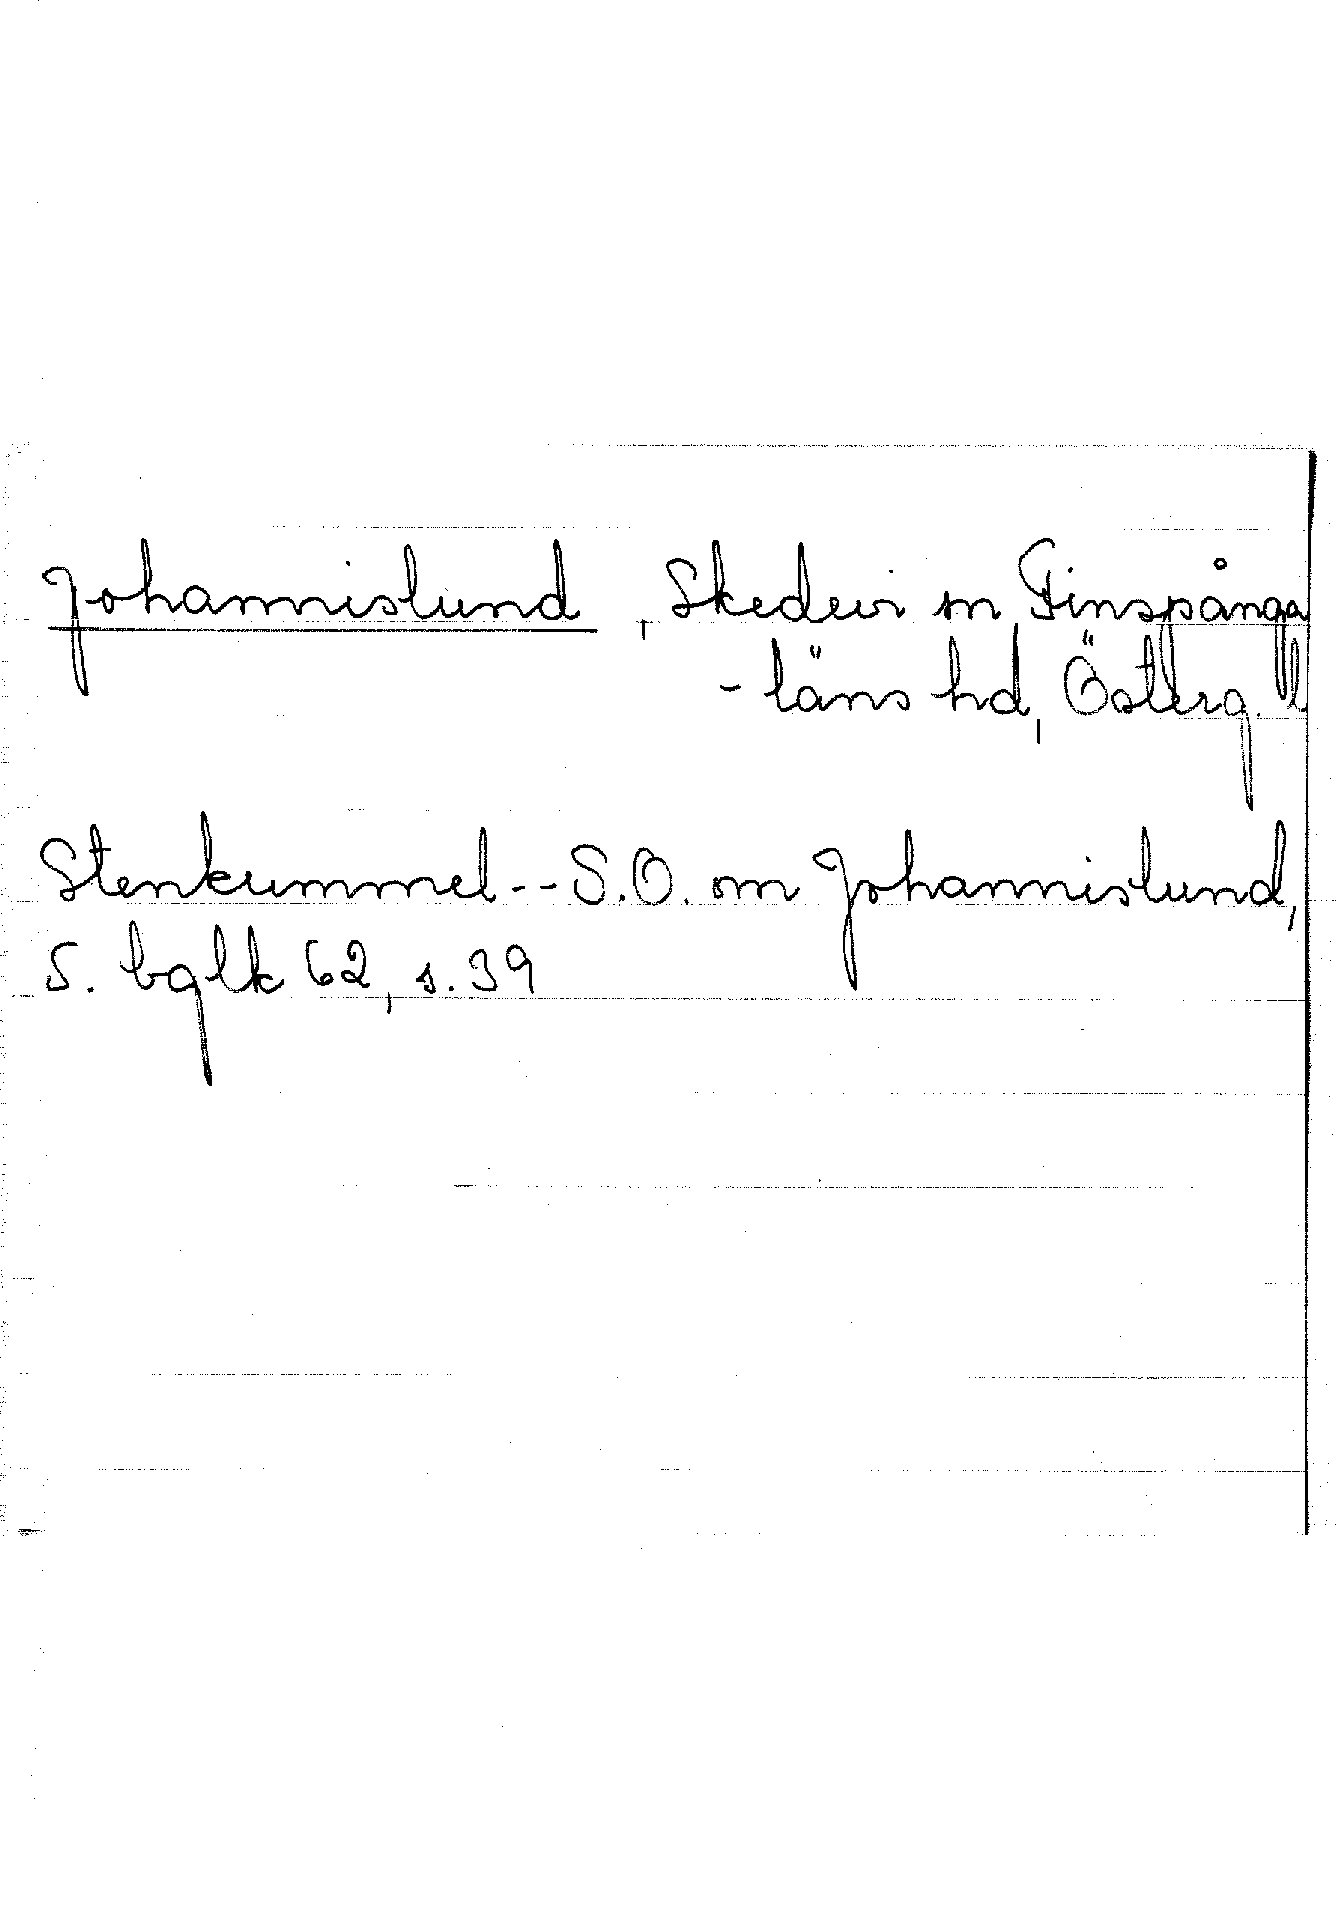 Johannislund, Skedevi sn Finspånga
-läns hd, Österg. l
Stenkummel--S.O. om Johannislund,
S. bglk 62, s. 39